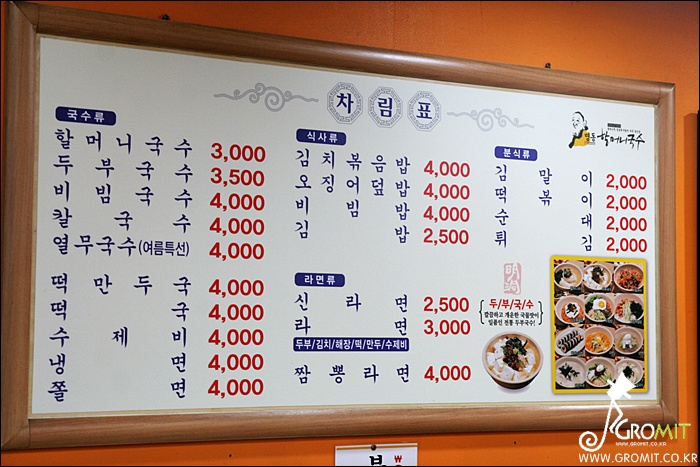 차림표
국수류
할머니국수 3,000
두부국수 3,500
비빔국수 4,000
칼국수 4,000
열무국수(여름특선) 4,000
떡만두국 4,000
떡국 4,000
수제비 4,000
냉면 4,000
쫄면 4,000
식사류
김치볶음밥 4,000
오징어덮밥 4,000
비빔밥 4,000
김밥 2,500
라면류
신라면 2,500
라면 3,000
두부/김치/해장/떡/만두/수제비
짬뽕라면 4,000
명동
할머니국수
분식류
김말이 2,000
떡볶이 2,000
순대 2,000
튀김 2,000
두/부/국/수
깔끔하고 개운한 국물맛이
일품인 전통 두부국수!
GROMIT
WWW.GROMIT.CO.KR